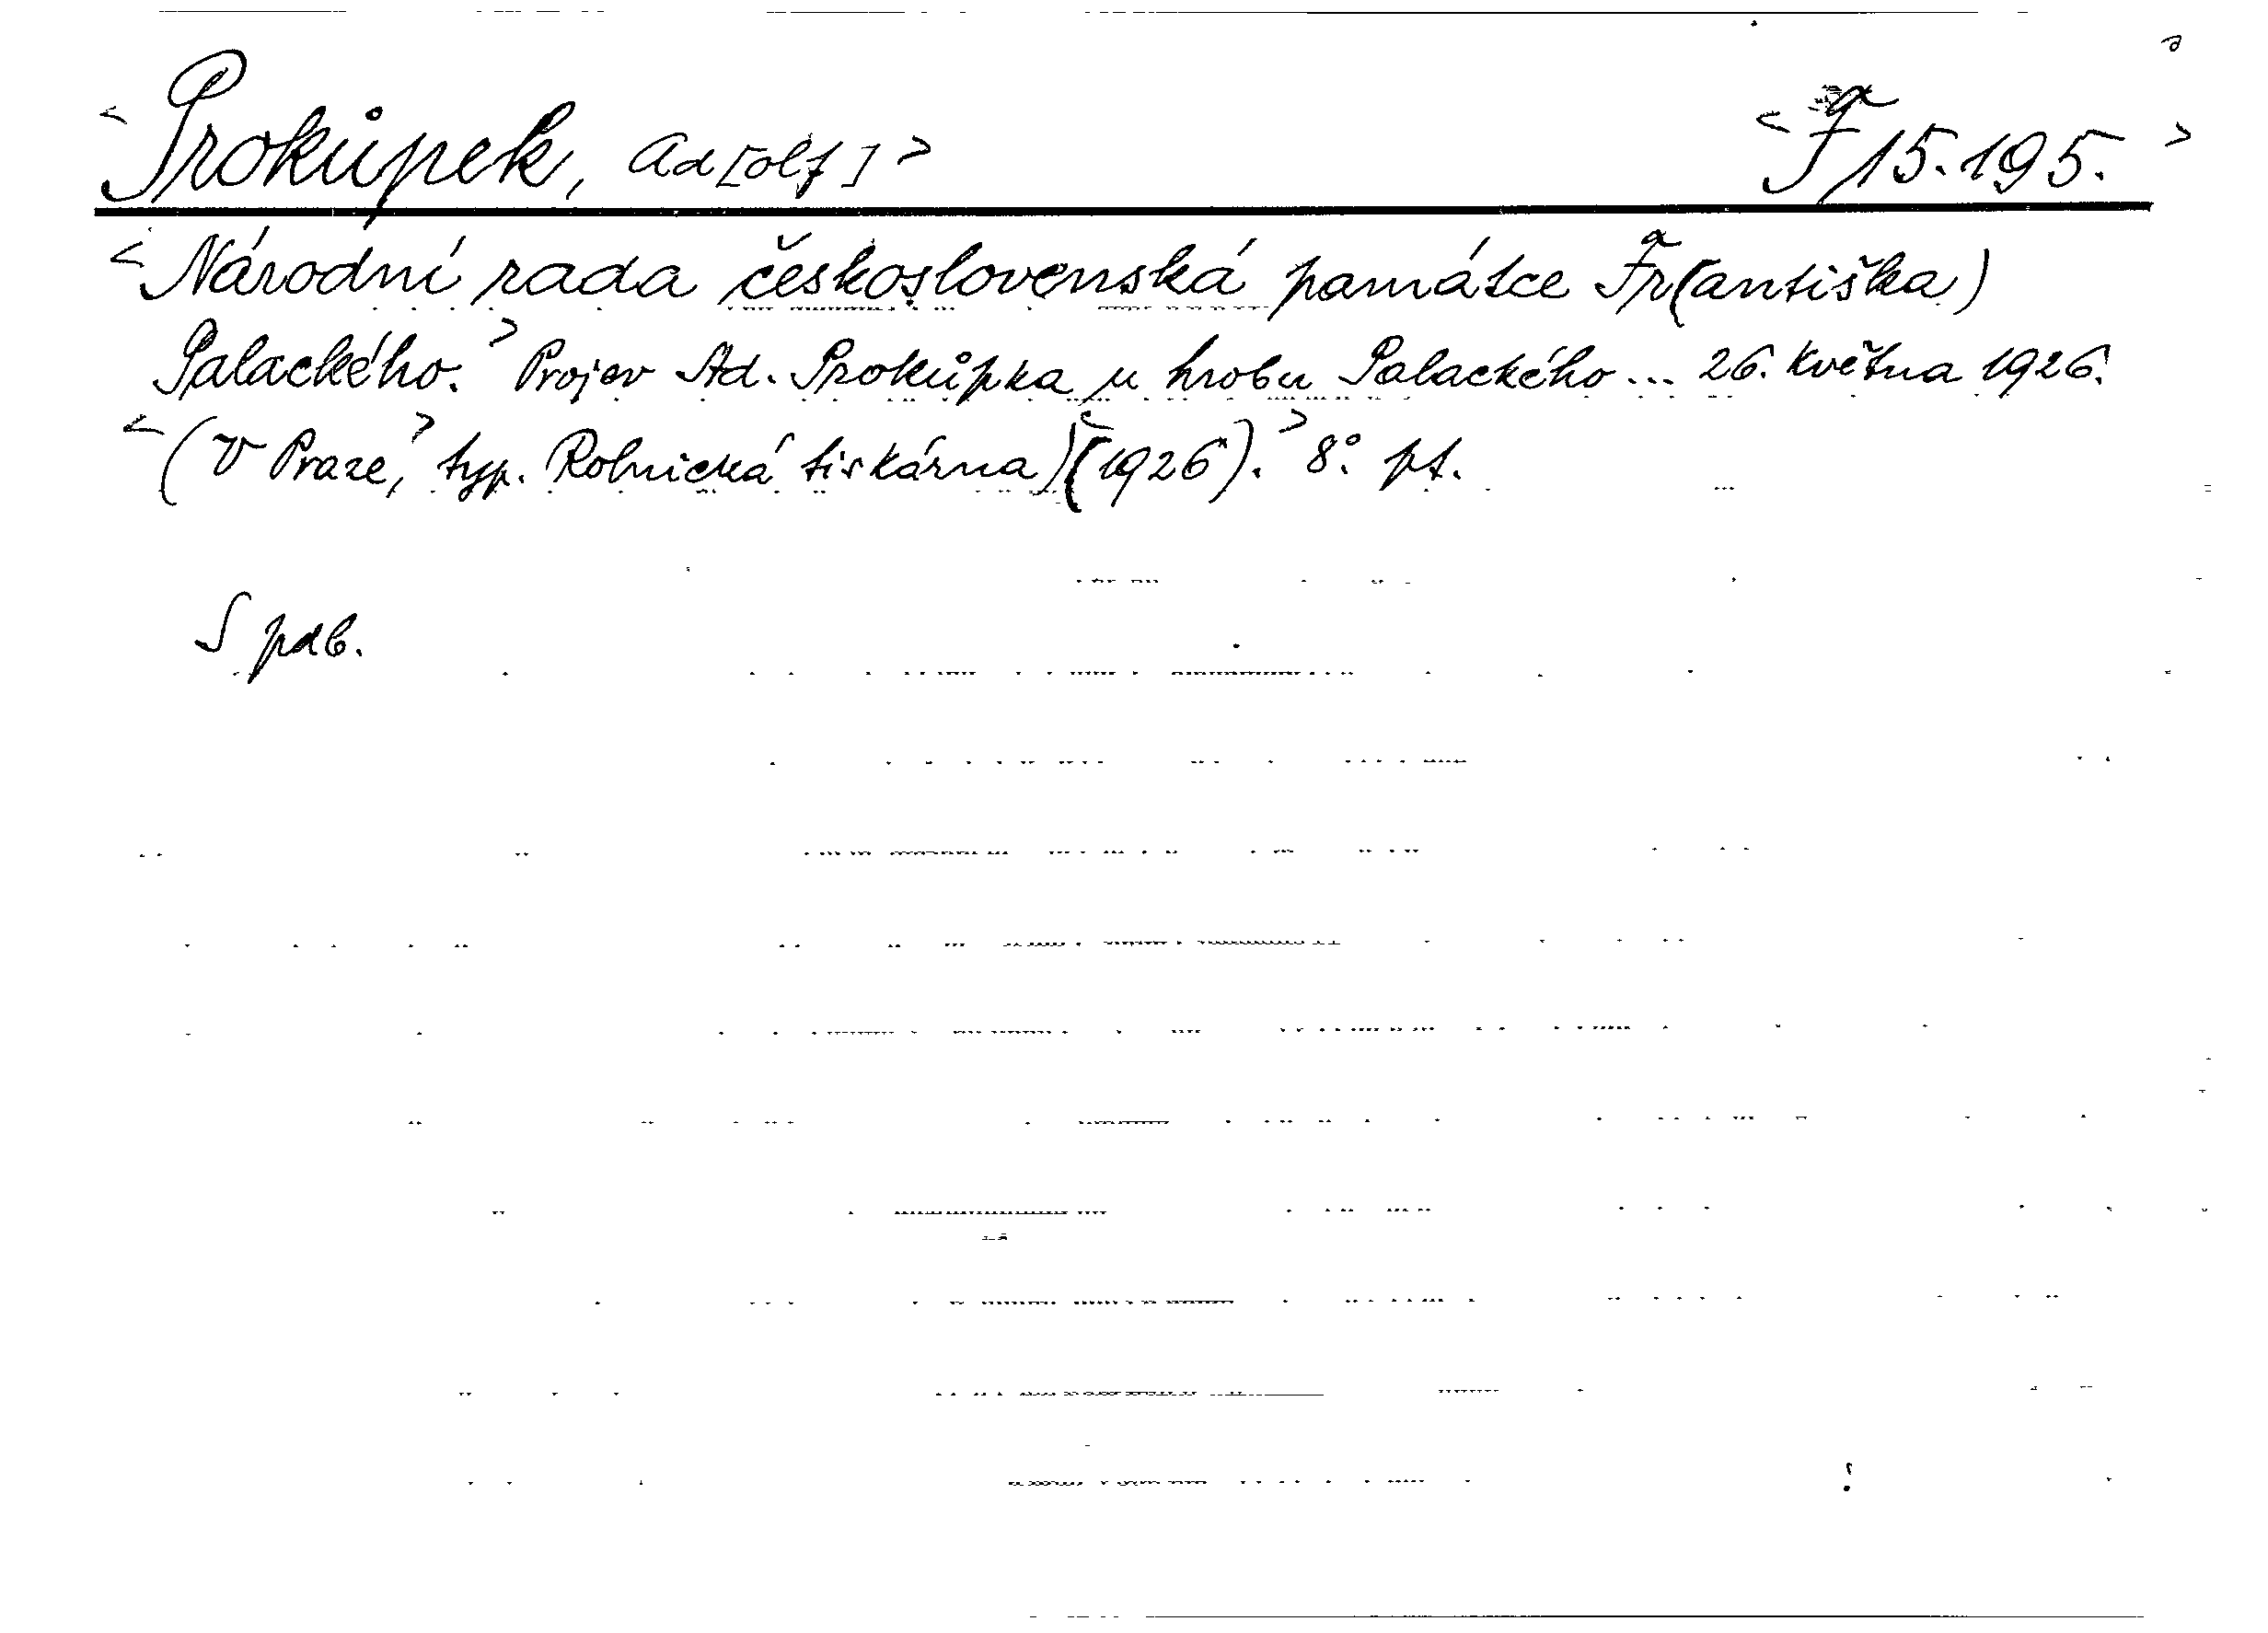 <Prokůpek, Ad[olf]> <F 15.195.>
<Národní rada československá památce Fr(antiška)
Palackého.> Projev Ad. Prokůpka u hrobu Palackého... 26. května 1926.
<(V Praze,> typ. Rolnická tiskárna)<(1926).> 8°. pf.
S pdb.